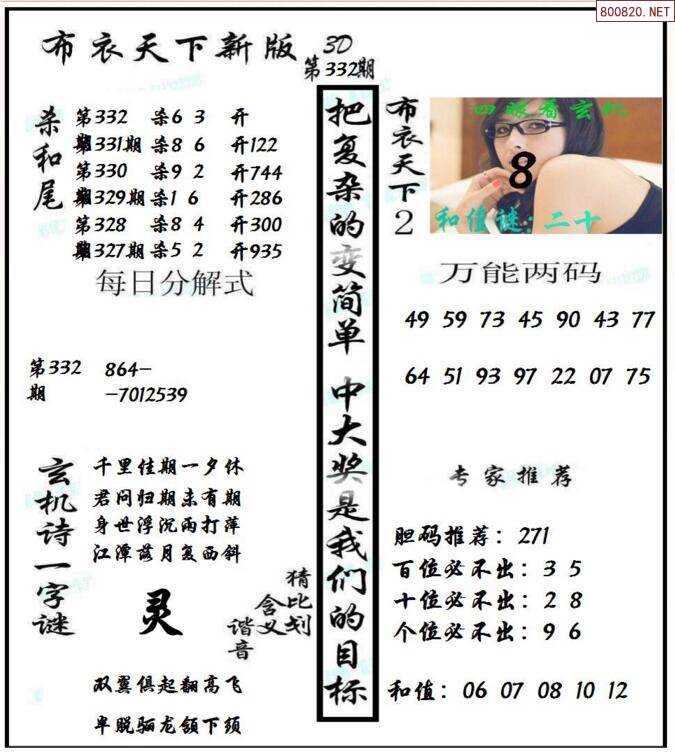 800820.NET
布衣天下新版
3D
第332期
杀和尾
第332 杀6 3 开
期331期 杀8 6 开122
第330 杀9 2 开744
期329期 杀1 6 开286
第328 杀8 4 开300
期327期 杀5 2 开935
每日分解式
第332 864-
期 -7012539
玄机诗一字谜
千里佳期一夕休
君问归期未有期
身世浮沉雨打萍
江潭落月复西斜
灵
猜比划
含义
谐音
双翼俱起翻高飞
早脱骊龙颔下须
把复杂的变简单 中大奖是我们的目标
布衣天下2
四眼看玄机
8
和值谜:二十
万能两码
49 59 73 45 90 43 77
64 51 93 97 22 07 75
专家推荐
胆码推荐:271
百位必不出:3 5
十位必不出:2 8
个位必不出:9 6
和值:06 07 08 10 12